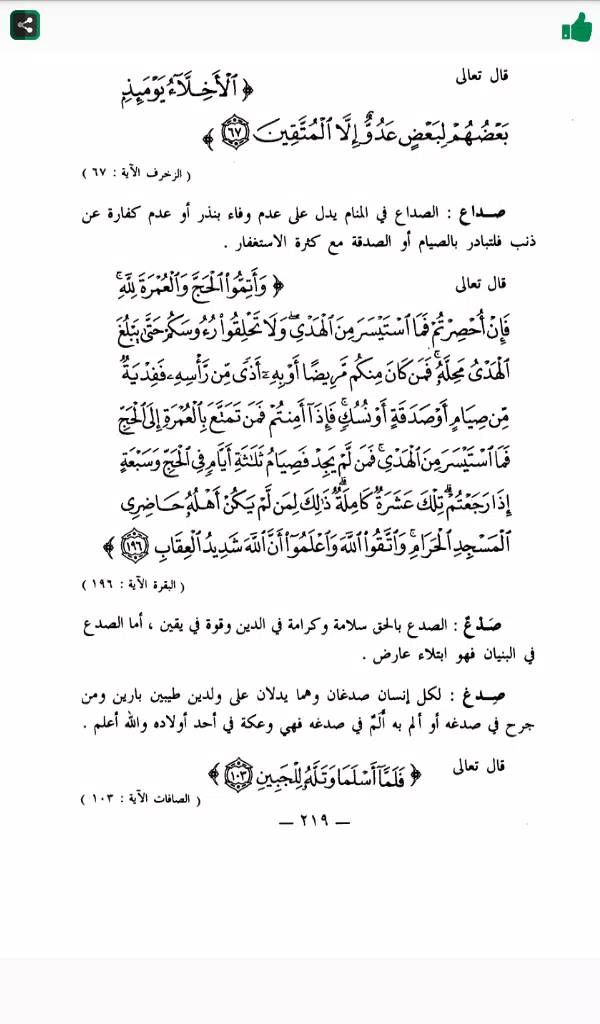 قال تعالى
﴿ ٱلْأَخِلَّآءُ يَوْمَئِذٍۭ
بَعْضُهُمْ لِبَعْضٍ عَدُوٌّ إِلَّا ٱلْمُتَّقِينَ ۝٦٧ ﴾
( الزخرف الآية : ٦٧ )
صـداع : الصداع في المنام يدل على عدم وفاء بنذر أو عدم كفارة عن
ذنب فلتبادر بالصيام أو الصدقة مع كثرة الاستغفار .
قال تعالى ﴿ وَأَتِمُّوا۟ ٱلْحَجَّ وَٱلْعُمْرَةَ لِلَّهِ ۚ
فَإِنْ أُحْصِرْتُمْ فَمَا ٱسْتَيْسَرَ مِنَ ٱلْهَدْىِ ۖ وَلَا تَحْلِقُوا۟ رُءُوسَكُمْ حَتَّىٰ يَبْلُغَ
ٱلْهَدْىُ مَحِلَّهُۥ ۚ فَمَن كَانَ مِنكُم مَّرِيضًا أَوْ بِهِۦٓ أَذًى مِّن رَّأْسِهِۦ فَفِدْيَةٌ
مِّن صِيَامٍ أَوْ صَدَقَةٍ أَوْ نُسُكٍ ۚ فَإِذَآ أَمِنتُمْ فَمَن تَمَتَّعَ بِٱلْعُمْرَةِ إِلَى ٱلْحَجِّ
فَمَا ٱسْتَيْسَرَ مِنَ ٱلْهَدْىِ ۚ فَمَن لَّمْ يَجِدْ فَصِيَامُ ثَلَـٰثَةِ أَيَّامٍ فِى ٱلْحَجِّ وَسَبْعَةٍ
إِذَا رَجَعْتُمْ ۗ تِلْكَ عَشَرَةٌ كَامِلَةٌ ۗ ذَٰلِكَ لِمَن لَّمْ يَكُنْ أَهْلُهُۥ حَاضِرِى
ٱلْمَسْجِدِ ٱلْحَرَامِ ۚ وَٱتَّقُوا۟ ٱللَّهَ وَٱعْلَمُوٓا۟ أَنَّ ٱللَّهَ شَدِيدُ ٱلْعِقَابِ ۝١٩٦ ﴾
( البقرة الآية : ١٩٦ )
صَدْعٌ : الصدع بالحق سلامة وكرامة في الدين وقوة في يقين ، أما الصدع
في البنيان فهو ابتلاء عارض .
صِدغ : لكل إنسان صدغان وهما يدلان على ولدين طيبين بارين ومن
جرح في صدغه أو ألم به ألَمٌ في صدغه فهي وعكة في أحد أولاده والله أعلم .
قال تعالى ﴿ فَلَمَّآ أَسْلَمَا وَتَلَّهُۥ لِلْجَبِينِ ۝١٠٣ ﴾
( الصافات الآية : ١٠٣ )
— ٢١٩ —